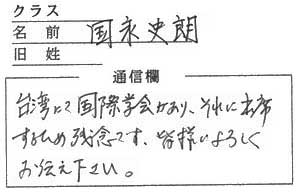 クラス
名前 国永史朗
旧姓
通信欄
台湾にて国際学会があり、それに出席
するため残念です。皆様によろしく
お伝え下さい。